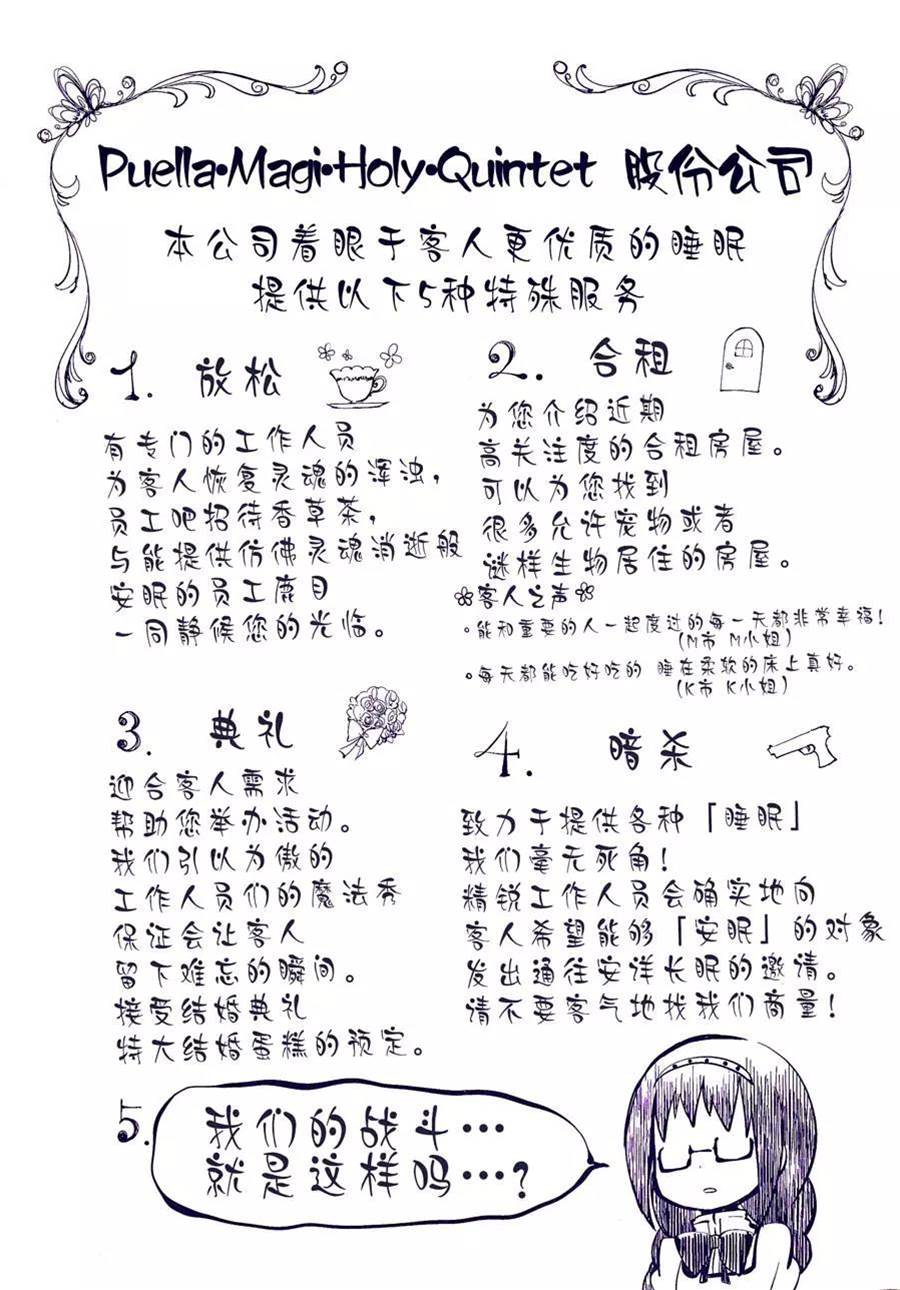 Puella•Magi•Holy•Quintet 股份公司
本公司着眼于客人更优质的睡眠
提供以下5种特殊服务
1. 放松
有专门的工作人员
为客人恢复灵魂的浑浊，
员工吧招待香草茶，
与能提供仿佛灵魂消逝般
安眠的员工鹿目
一同静候您的光临。
2. 合租
为您介绍近期
高关注度的合租房屋。
可以为您找到
很多允许宠物或者
谜样生物居住的房屋。
❀客人之声❀
•能和重要的人一起度过的每一天都非常幸福！
(M市 M小姐)
•每天都能吃好吃的 睡在柔软的床上真好。
(K市 K小姐)
3. 典礼
迎合客人需求
帮助您举办活动。
我们引以为傲的
工作人员们的魔法秀
保证会让客人
留下难忘的瞬间。
接受结婚典礼
特大结婚蛋糕的预定。
4. 暗杀
致力于提供各种「睡眠」
我们毫无死角！
精锐工作人员会确实地向
客人希望能够「安眠」的对象
发出通往安详长眠的邀请。
请不要客气地找我们商量！
5.
我们的战斗…
就是这样吗…？